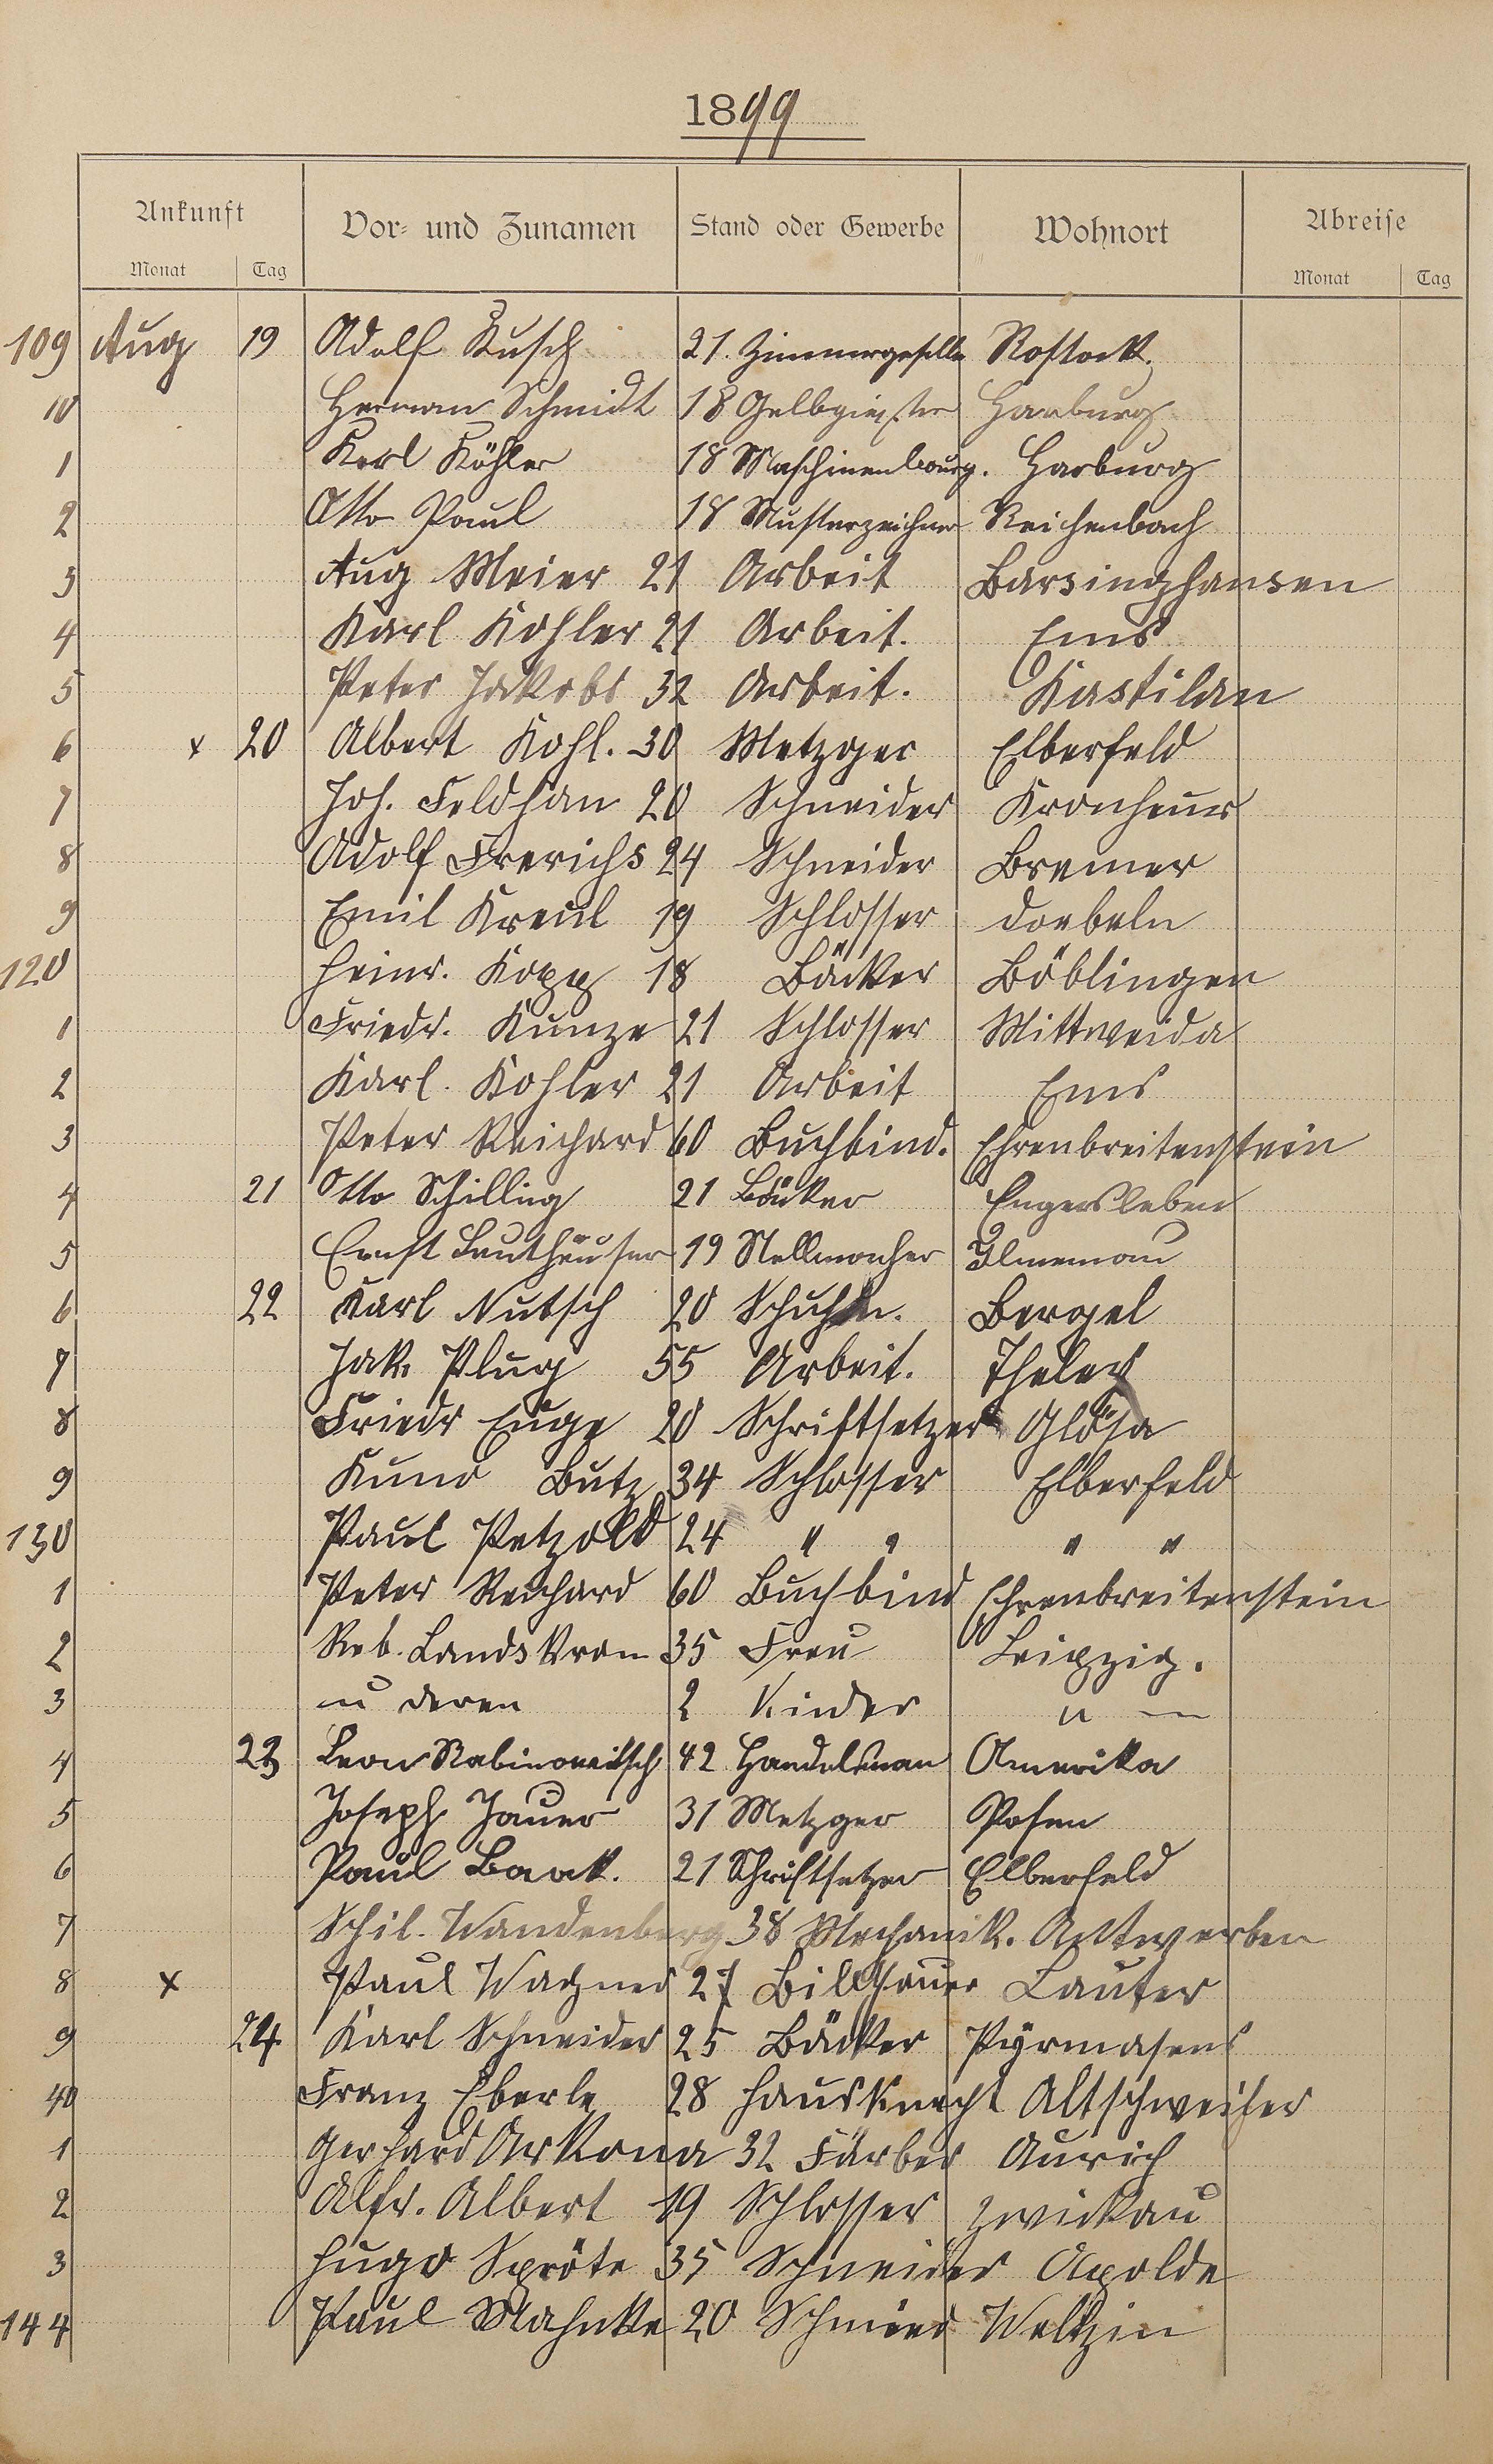 1899
Ankunft Vor- und Zunamen Stand oder Gewerbe Wohnort Abreise
Monat Tag Monat Tag
109 Aug 19 Adolf Kusch 21. Zimmergeselle Rostock.
10 Herman Schmidt 18 Gelbgiesser Harburg
1 Karl Köhler 18 Maschinenbaug. Harburg
2 Otto Paul 18 Musterzeichner Reichenbach
3 Aug Meier 21 Arbeit Barsinghausen
4 Karl Kohler 21 Arbeit. Ems
5 Peter Jakobs 32 Arbeit. Kastilan
6 x 20 Albert Kohl. 30 Metzger Elberfeld
7 Joh. Feldhan 20 Schneider Kronheim
8 Adolf Frerichs 24 Schneider Bremer
9 Emil Kreul 19 Schlosser Doebeln
120 Heinr. Kopp 18 Bäcker Böblingen
1 Friedr. Kunze 21 Schlosser Mittweida
2 Karl. Kohler 21 Arbeit Ems
3 Peter Reichard 60 Buchbind. Ehrenbreitenstein
4 21 Otto Schilling 21 Bäcker Engersleben
5 Ernst Leuthäuser 19 Stellmacher Ilmenau
6 22 Karl Nutsch 20 Schuhm. Bergel
7 Jak. Plug 55 Arbeit. Theley
8 Friedr Enge 20 Schriftsetzer Glösa
9 Kuno Butz 34 Schlosser Elberfeld
130 Paul Petzold 24 " " " "
1 Peter Reichard 60 Buchbind Ehrenbreitenstein
2 Reb. Landskron 35 Frau Leipzig.
3 u deren 2 Kinder " —
4 23 Leon Rabinowitsch 42 Handelsman Amerika
5 Joseph Jauer 31 Metzger Posen
6 Paul Baak. 21 Schriftsetzer Elberfeld
7 Schil. Wandenberg 38 Mechanik. Antwerben
8 x Paul Wagner 27 Bildhauer Lauter
9 24. Karl Schneider 25 Bäcker Pyrmasens
40 Franz Eberle 28 Hausknecht Altschweiher
1 Gerhard Arkona 32 Färber Aurich
2 Alfr. Albert 19 Schlosser Zwickau
3 Hugo Spröte 35 Schneider Apolde
144 Paul Mahnke 20 Schmied Weltzin